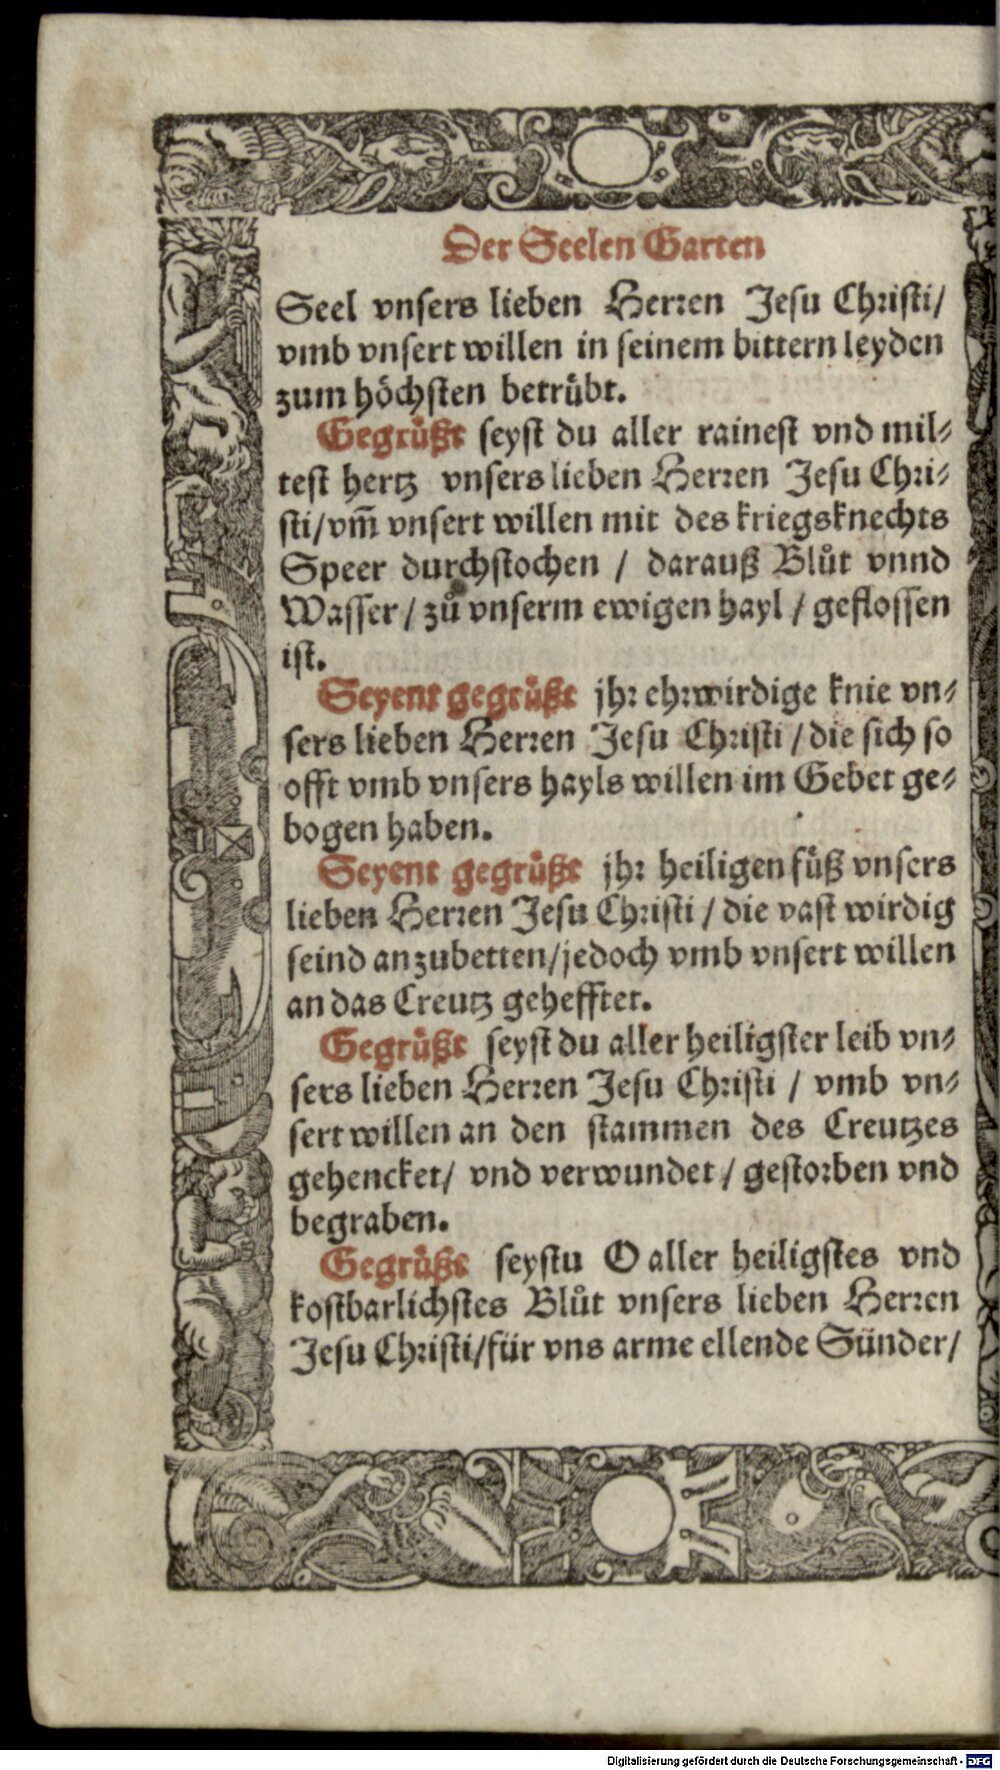 Der Seelen Garten
Seel vnsers lieben Herren Jesu Christi/
vmb vnsert willen in seinem bittern leyden
zum höchsten betrübt.
Gegrüßt seyst du aller rainest vnd mil-
test hertz vnsers lieben Herren Jesu Chri-
sti/vm̃ vnsert willen mit des kriegsknechts
Speer durchstochen / darauß Blůt vnnd
Wasser / zů vnserm ewigen hayl / geflossen
ist.
Seyent gegrüßt jhr ehrwirdige knie vn-
sers lieben Herren Jesu Christi / die sich so
offt vmb vnsers hayls willen im Gebet ge-
bogen haben.
Seyent gegrüßt jhr heiligen füß vnsers
lieben Herren Jesu Christi / die vast wirdig
seind anzubetten/jedoch vmb vnsert willen
an das Creutz gehefftet.
Gegrüßt seyst du aller heiligster leib vn-
sers lieben Herren Jesu Christi / vmb vn-
sert willen an den stammen des Creutzes
gehencket/ vnd verwundet / gestorben vnd
begraben.
Gegrüßt seystu O aller heiligstes vnd
kostbarlichstes Blůt vnsers lieben Herren
Jesu Christi/für vns arme ellende Sünder/
Digitalisierung gefördert durch die Deutsche Forschungsgemeinschaft - DFG